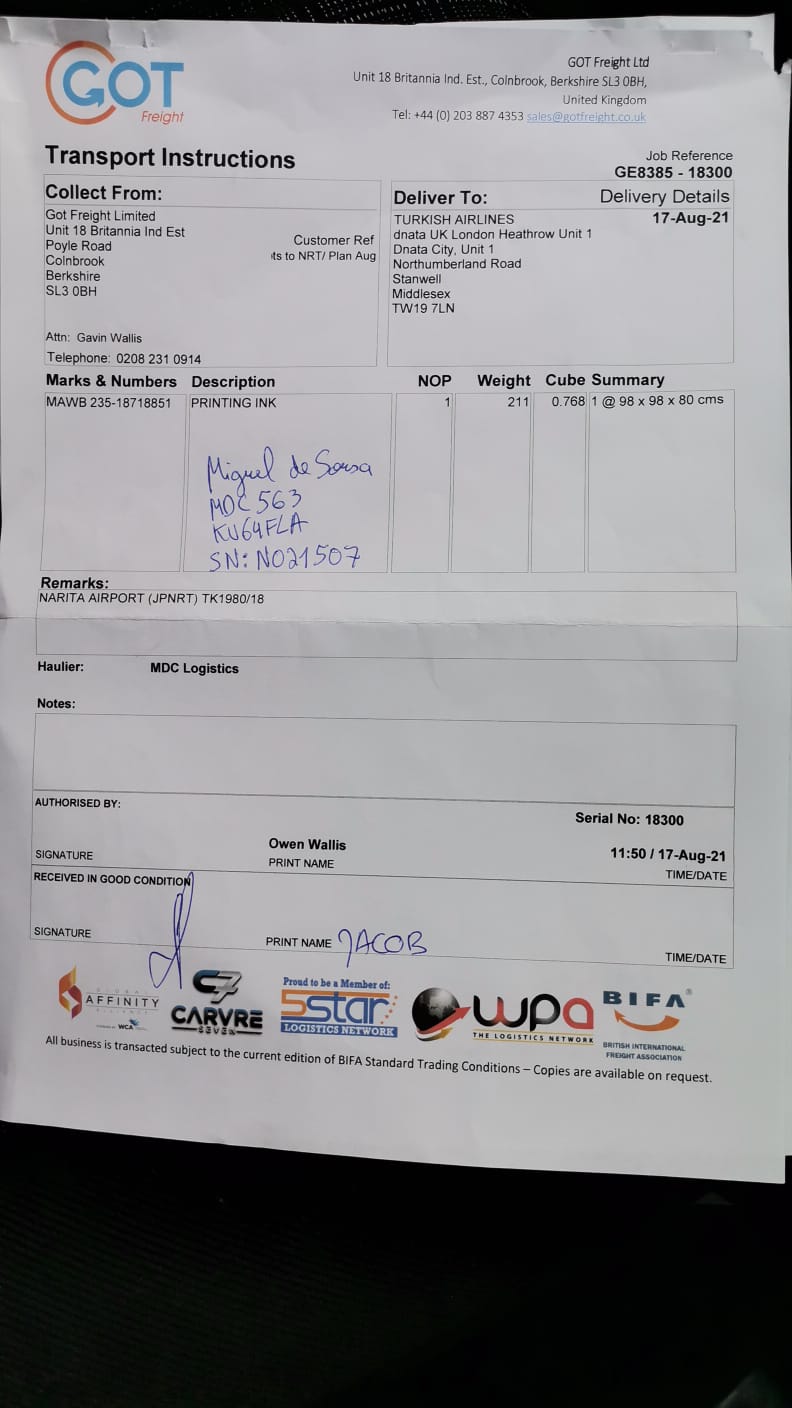 GOT
Freight
GOT Freight Ltd
Unit 18 Britannia Ind. Est., Colnbrook, Berkshire SL3 0BH,
United Kingdom
Tel: +44 (0) 203 887 4353 sales@gotfreight.co.uk
Transport Instructions
Job Reference
GE8385 - 18300
Collect From:
Got Freight Limited
Unit 18 Britannia Ind Est
Poyle Road
Colnbrook
Berkshire
SL3 0BH
Customer Ref
ts to NRT/ Plan Aug
Attn: Gavin Wallis
Telephone: 0208 231 0914
Deliver To:
Delivery Details
TURKISH AIRLINES
17-Aug-21
dnata UK London Heathrow Unit 1
Dnata City, Unit 1
Northumberland Road
Stanwell
Middlesex
TW19 7LN
Marks & Numbers Description NOP Weight Cube Summary
MAWB 235-18718851 PRINTING INK 1 211 0.768 1 @ 98 x 98 x 80 cms
Miguel de Sousa
MDC 563
KU64FLA
SN: NO21507
Remarks:
NARITA AIRPORT (JPNRT) TK1980/18
Haulier: MDC Logistics
Notes:
AUTHORISED BY:
Serial No: 18300
Owen Wallis
11:50 / 17-Aug-21
SIGNATURE PRINT NAME TIME/DATE
RECEIVED IN GOOD CONDITION
SIGNATURE PRINT NAME JACOB TIME/DATE
GLOBAL
AFFINITY
ALLIANCE
WCA
C7
CARVRE
SEVEN
Proud to be a Member of:
5star
LOGISTICS NETWORK
wpa
THE LOGISTICS NETWORK
BIFA®
BRITISH INTERNATIONAL
FREIGHT ASSOCIATION
All business is transacted subject to the current edition of BIFA Standard Trading Conditions – Copies are available on request.